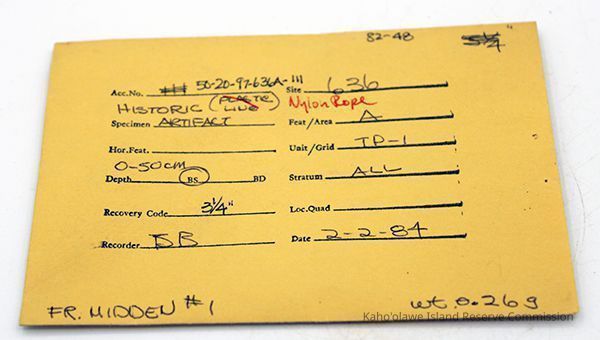 82-48
5¼"
Acc.No. 50-20-97-636A-111 Site 636
HISTORIC (PLASTIC LINE) Nylon Rope
Specimen ARTIFACT Feat/Area A
Hor.Feat. Unit/Grid TP-1
0-50cm
Depth BS BD Stratum ALL
Recovery Code 3¼" Loc.Quad
Recorder BB Date 2-2-84
FR. MIDDEN #1 wt. 0.26g
Kaho'olawe Island Reserve Commission